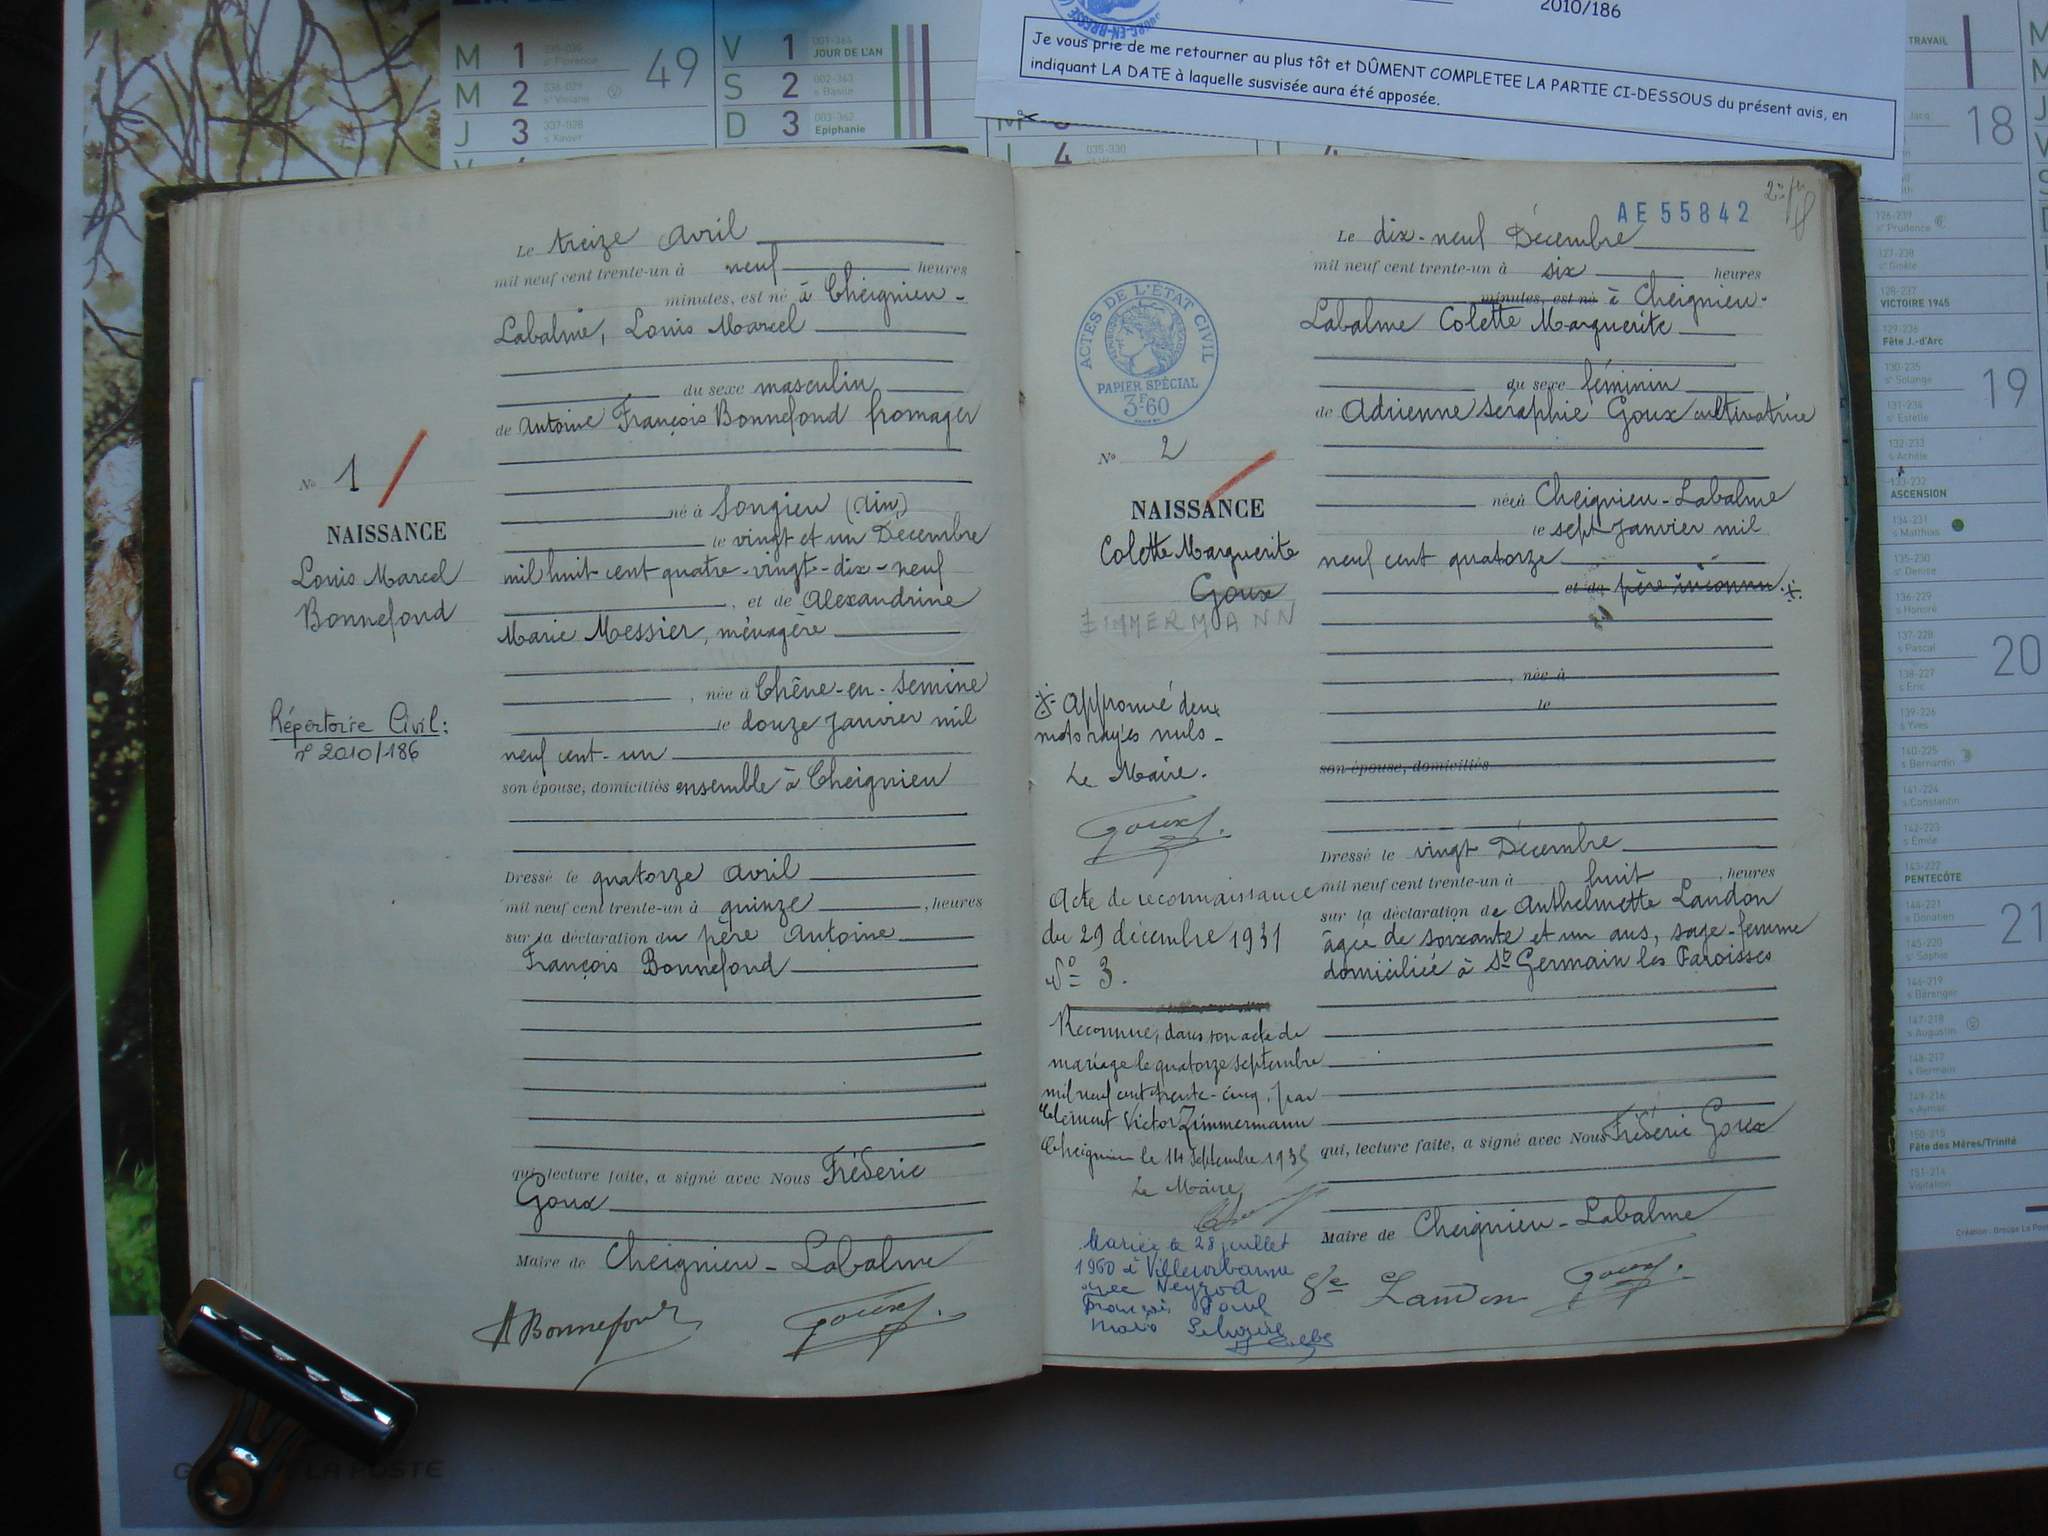 M 1 335-030 sᵉ Florence 49
M 2 336-029 sᵉ Viviane
J 3 337-028 s Xavier
V 1 001-364 JOUR DE L'AN
S 2 002-363 s Basile
D 3 003-362 Epiphanie
L 4 035-330
2010/186
Je vous prie de me retourner au plus tôt et DÛMENT COMPLETEE LA PARTIE CI-DESSOUS du présent avis, en
indiquant LA DATE à laquelle susvisée aura été apposée.
Le treize Avril
mil neuf cent trente-un à neuf heures
minutes, est né à Cheignieu-
Labalme, Louis Marcel
du sexe masculin
de Antoine François Bonnefond fromager
né à Songieu (Ain)
le vingt et un Décembre
mil huit cent quatre-vingt-dix-neuf
, et de Alexandrine
Marie Messier, ménagère
, née à Chêne-en-Semine
le douze Janvier mil
neuf cent-un
son épouse, domiciliés ensemble à Cheignieu
Dressé le quatorze Avril
mil neuf cent trente-un à quinze , heures
sur la déclaration du père Antoine
François Bonnefond
qui, lecture faite, a signé avec Nous Frédéric
Goux
Maire de Cheignieu-Labalme
ABonnefond Goux
N° 1
NAISSANCE
Louis Marcel
Bonnefond
Répertoire Civil:
n° 2010/186
AE 55842
Le dix-neuf Décembre
mil neuf cent trente-un à six heures
minutes, est né à Cheignieu-
Labalme Colette Marguerite
du sexe féminin
de Adrienne Séraphie Goux cultivatrice
née à Cheignieu-Labalme
le sept Janvier mil
neuf cent quatorze
et de père inconnu
, née à
le
son épouse, domiciliés
Dressé le vingt Décembre
mil neuf cent trente-un à huit , heures
sur la déclaration de Anthelmette Landon
âgée de soixante et un ans, sage-femme
domiciliée à St Germain les Paroisses
qui, lecture faite, a signé avec Nous Frédéric Goux
Maire de Cheignieu-Labalme
Landon Goux
ACTES DE L'ETAT CIVIL
PAPIER SPÉCIAL
3F60
N° 2
NAISSANCE
Colette Marguerite
Goux
ZIMMERMANN
Approuvé deux
mots rayés nuls-
Le Maire.
Goux
Acte de reconnaissance
du 29 décembre 1931
N° 3.
Reconnue, dans son acte de
mariage le quatorze septembre
mil neuf cent trente-cinq, par
Clément Victor Zimmermann
Cheignieu le 14 Septembre 1935
Le Maire
Mariée le 28 juillet
1960 à Villeurbanne
avec Neyrod
François Paul
Mario
TRAVAIL
18
126-239 sᵉ Prudence
127-238 sᵉ Gisèle
128-237 VICTOIRE 1945
129-236 Fête J.-d'Arc
130-235 sᵉ Solange 19
131-234 sᵉ Estelle
132-233 s Achille
133-232 ASCENSION
134-231 s Matthias
135-230 sᵉ Denise
136-229 s Honoré
137-228 s Pascal 20
138-227 s Eric
139-226 s Yves
140-225 s Bernardin
141-224 s Constantin
142-223 s Emile
143-222 PENTECÔTE
144-221 s Donatien 21
145-220 sᵉ Sophie
146-219 s Bérenger
147-218 s Augustin
148-217 s Germain
149-216 s Aymar
150-215 Fête des Mères/Trinité
151-214 Visitation
LA POSTE